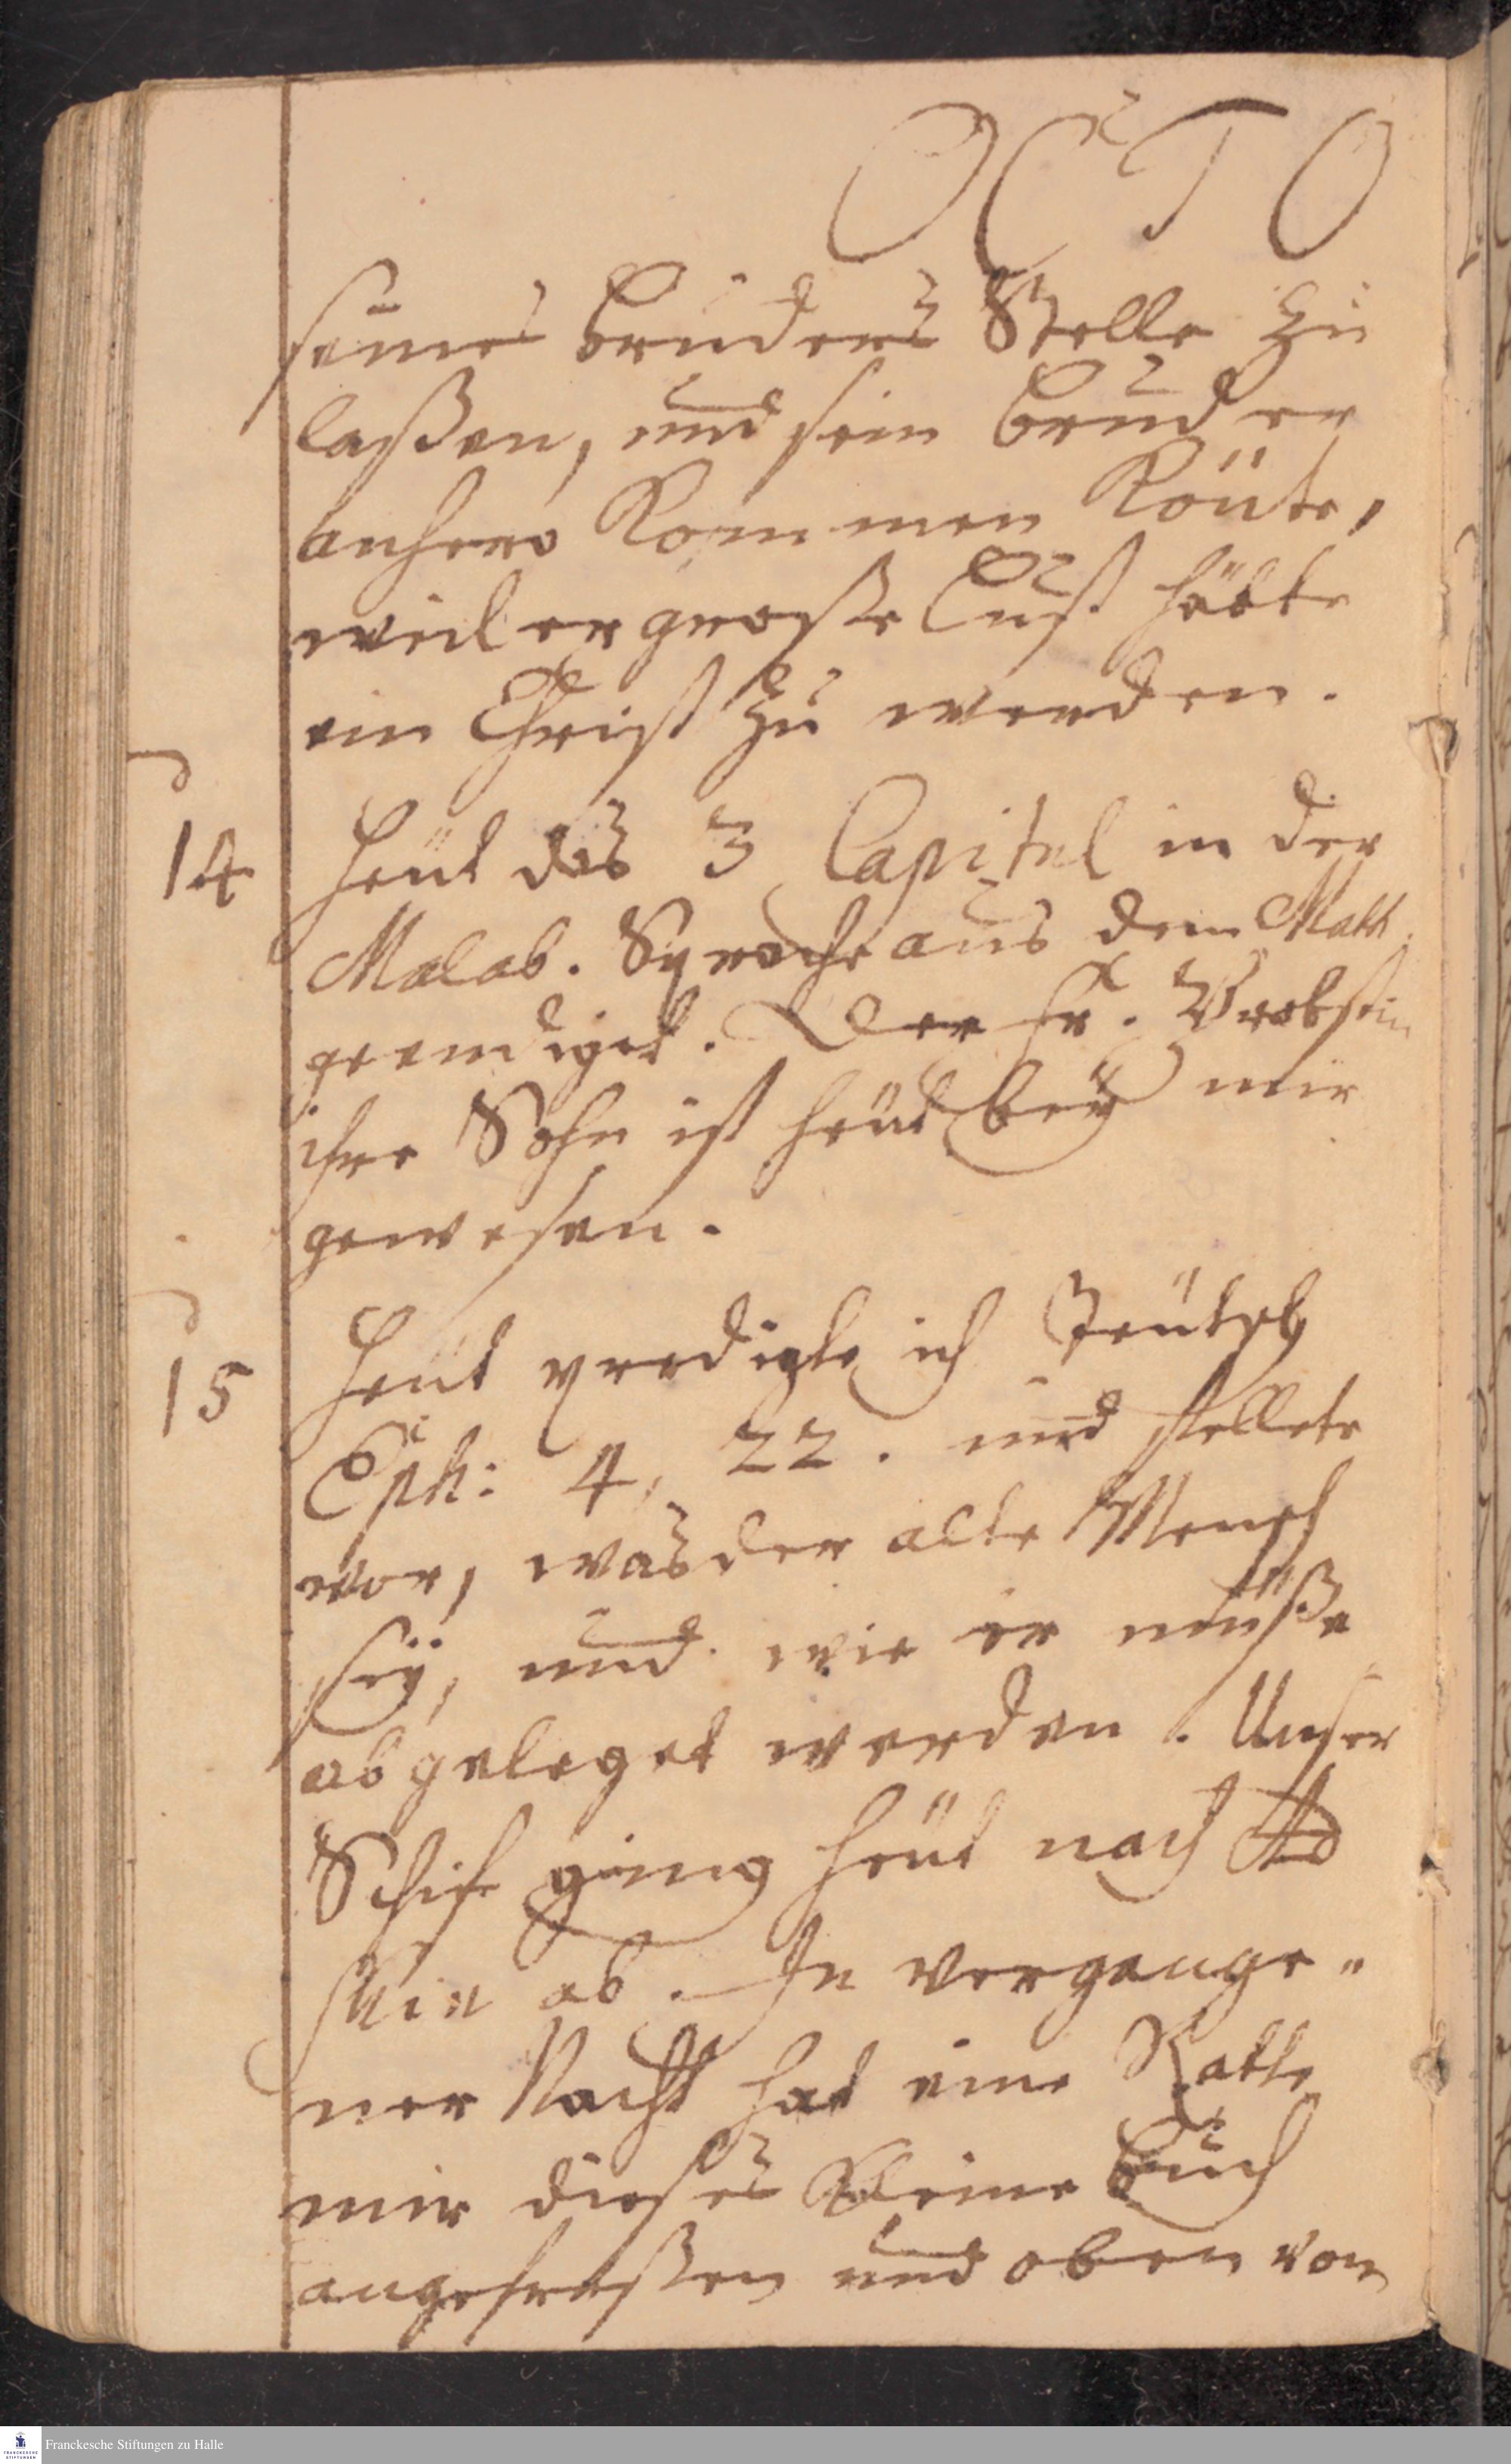 OCTO
seines bruders Stelle zu
laßen, und sein bruder
anhero Kommen Könte,
weil er große Lust hätte
ein Christ zu werden.
14 Heut das 3 Capitel in der
Malab. Sprache aus dem Matth.
geendiget. Der Fr.
ihre Sohn ist heut bey mir
gewesen.
15 Heut predigte ich Teutsch
Eph: 4, 22. und stellete
vor, was der alte Mensch
sey, und wie er müße
abgeleget werden. Unser
Schif ging heut nach
ab. In vergange-
ner Nacht hat eine Ratte
mir dieses Kleine buch
angefreßen und oben von
Franckesche Stiftungen zu Halle